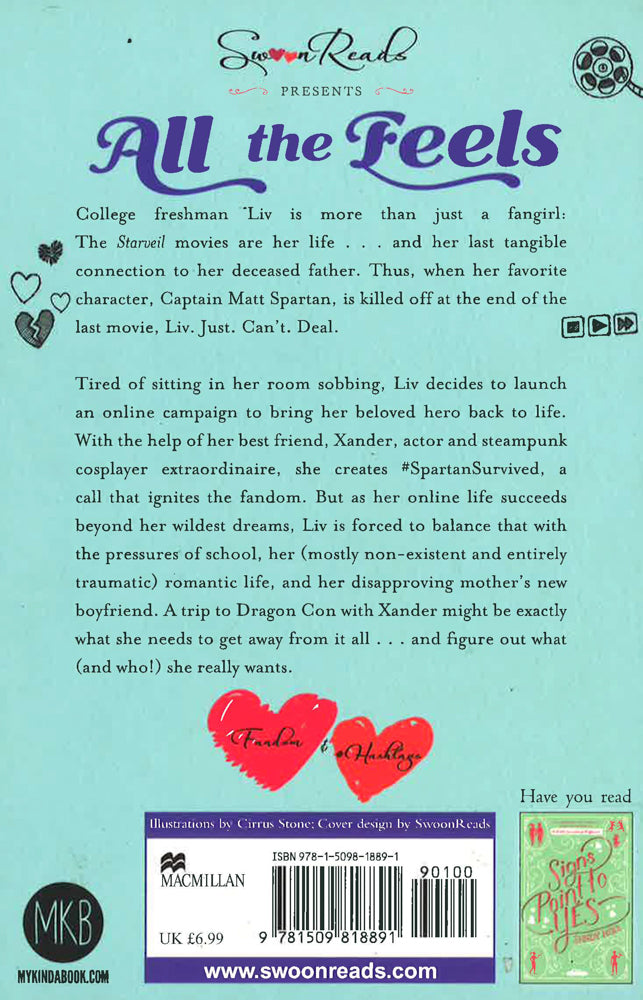 SwoonReads
PRESENTS
All the Feels
College freshman Liv is more than just a fangirl:
The Starveil movies are her life . . . and her last tangible
connection to her deceased father. Thus, when her favorite
character, Captain Matt Spartan, is killed off at the end of the
last movie, Liv. Just. Can't. Deal.
Tired of sitting in her room sobbing, Liv decides to launch
an online campaign to bring her beloved hero back to life.
With the help of her best friend, Xander, actor and steampunk
cosplayer extraordinaire, she creates #SpartanSurvived, a
call that ignites the fandom. But as her online life succeeds
beyond her wildest dreams, Liv is forced to balance that with
the pressures of school, her (mostly non-existent and entirely
traumatic) romantic life, and her disapproving mother's new
boyfriend. A trip to Dragon Con with Xander might be exactly
what she needs to get away from it all . . . and figure out what
(and who!) she really wants.
Fandom & #Hashtags
Have you read
Signs
Point to
YES
Illustrations by Cirrus Stone; Cover design by SwoonReads
MACMILLAN
UK £6.99
ISBN 978-1-5098-1889-1
90100
9 781509 818891
www.swoonreads.com
MKB
MYKINDABOOK.COM